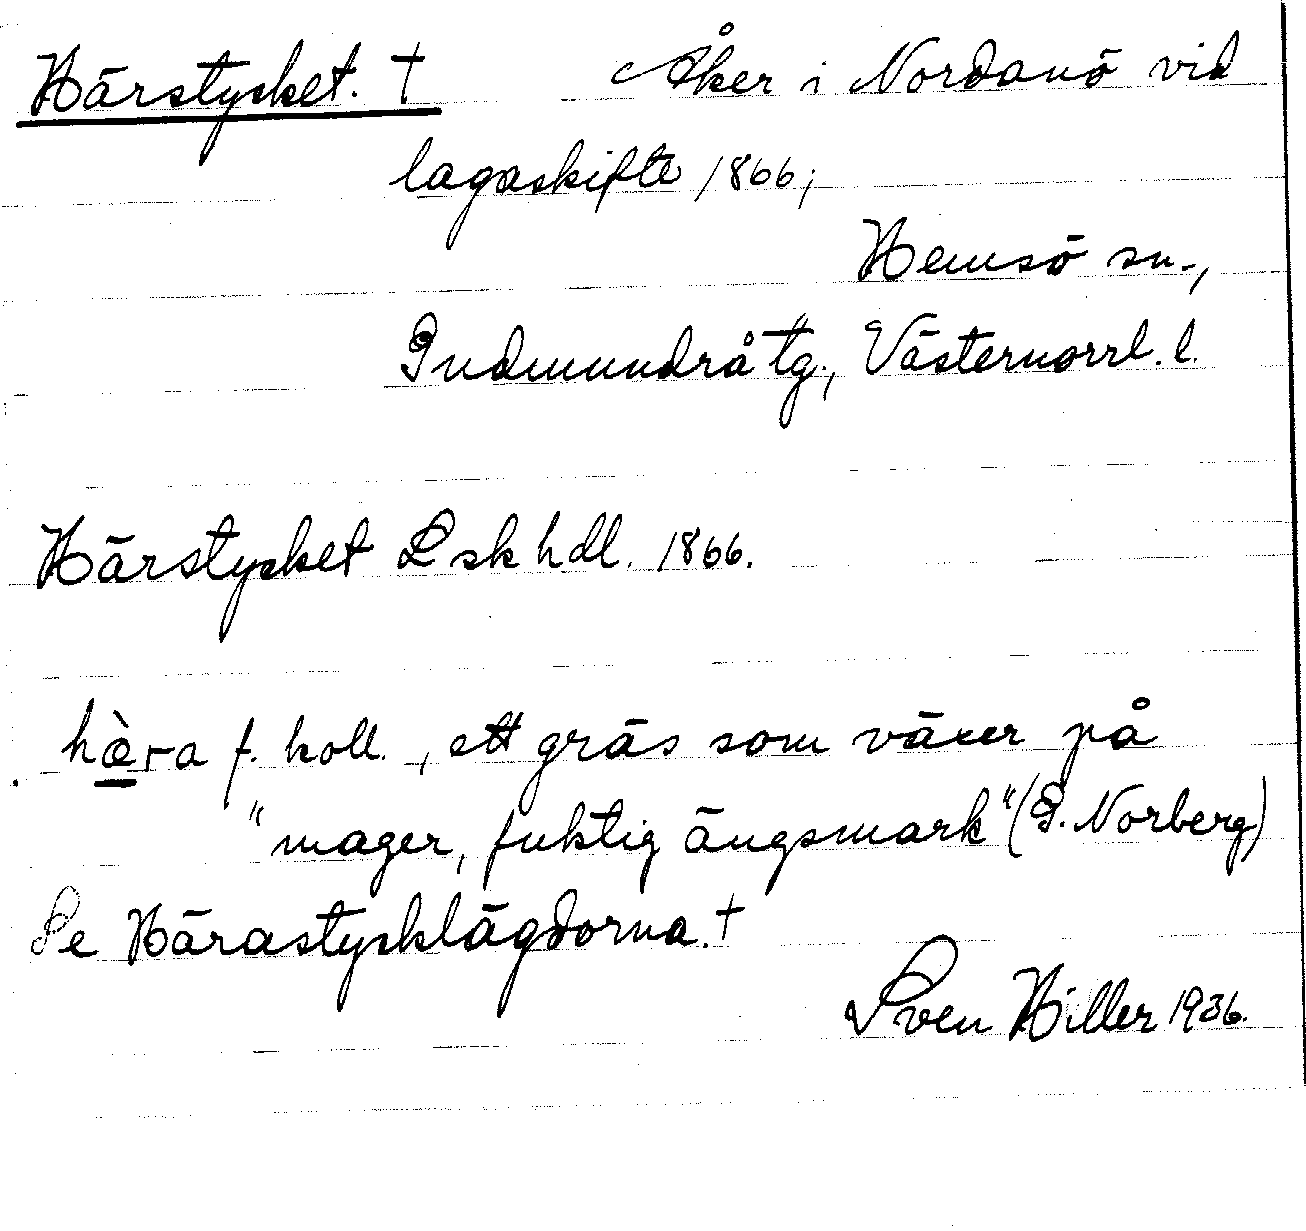 Härstycket. † Åker i Nordanö vid
lagaskifte 1866;
Hemsö sn.,
Gudmundrå tg., Västernorrl. l.
Härstycket Lskhdl. 1866.
hæ̀ra f. koll., ett gräs som växer på
"mager, fuktig ängsmark" (G. Norberg)
Se Härastycklägdorna. †
Sven Hiller 1936.